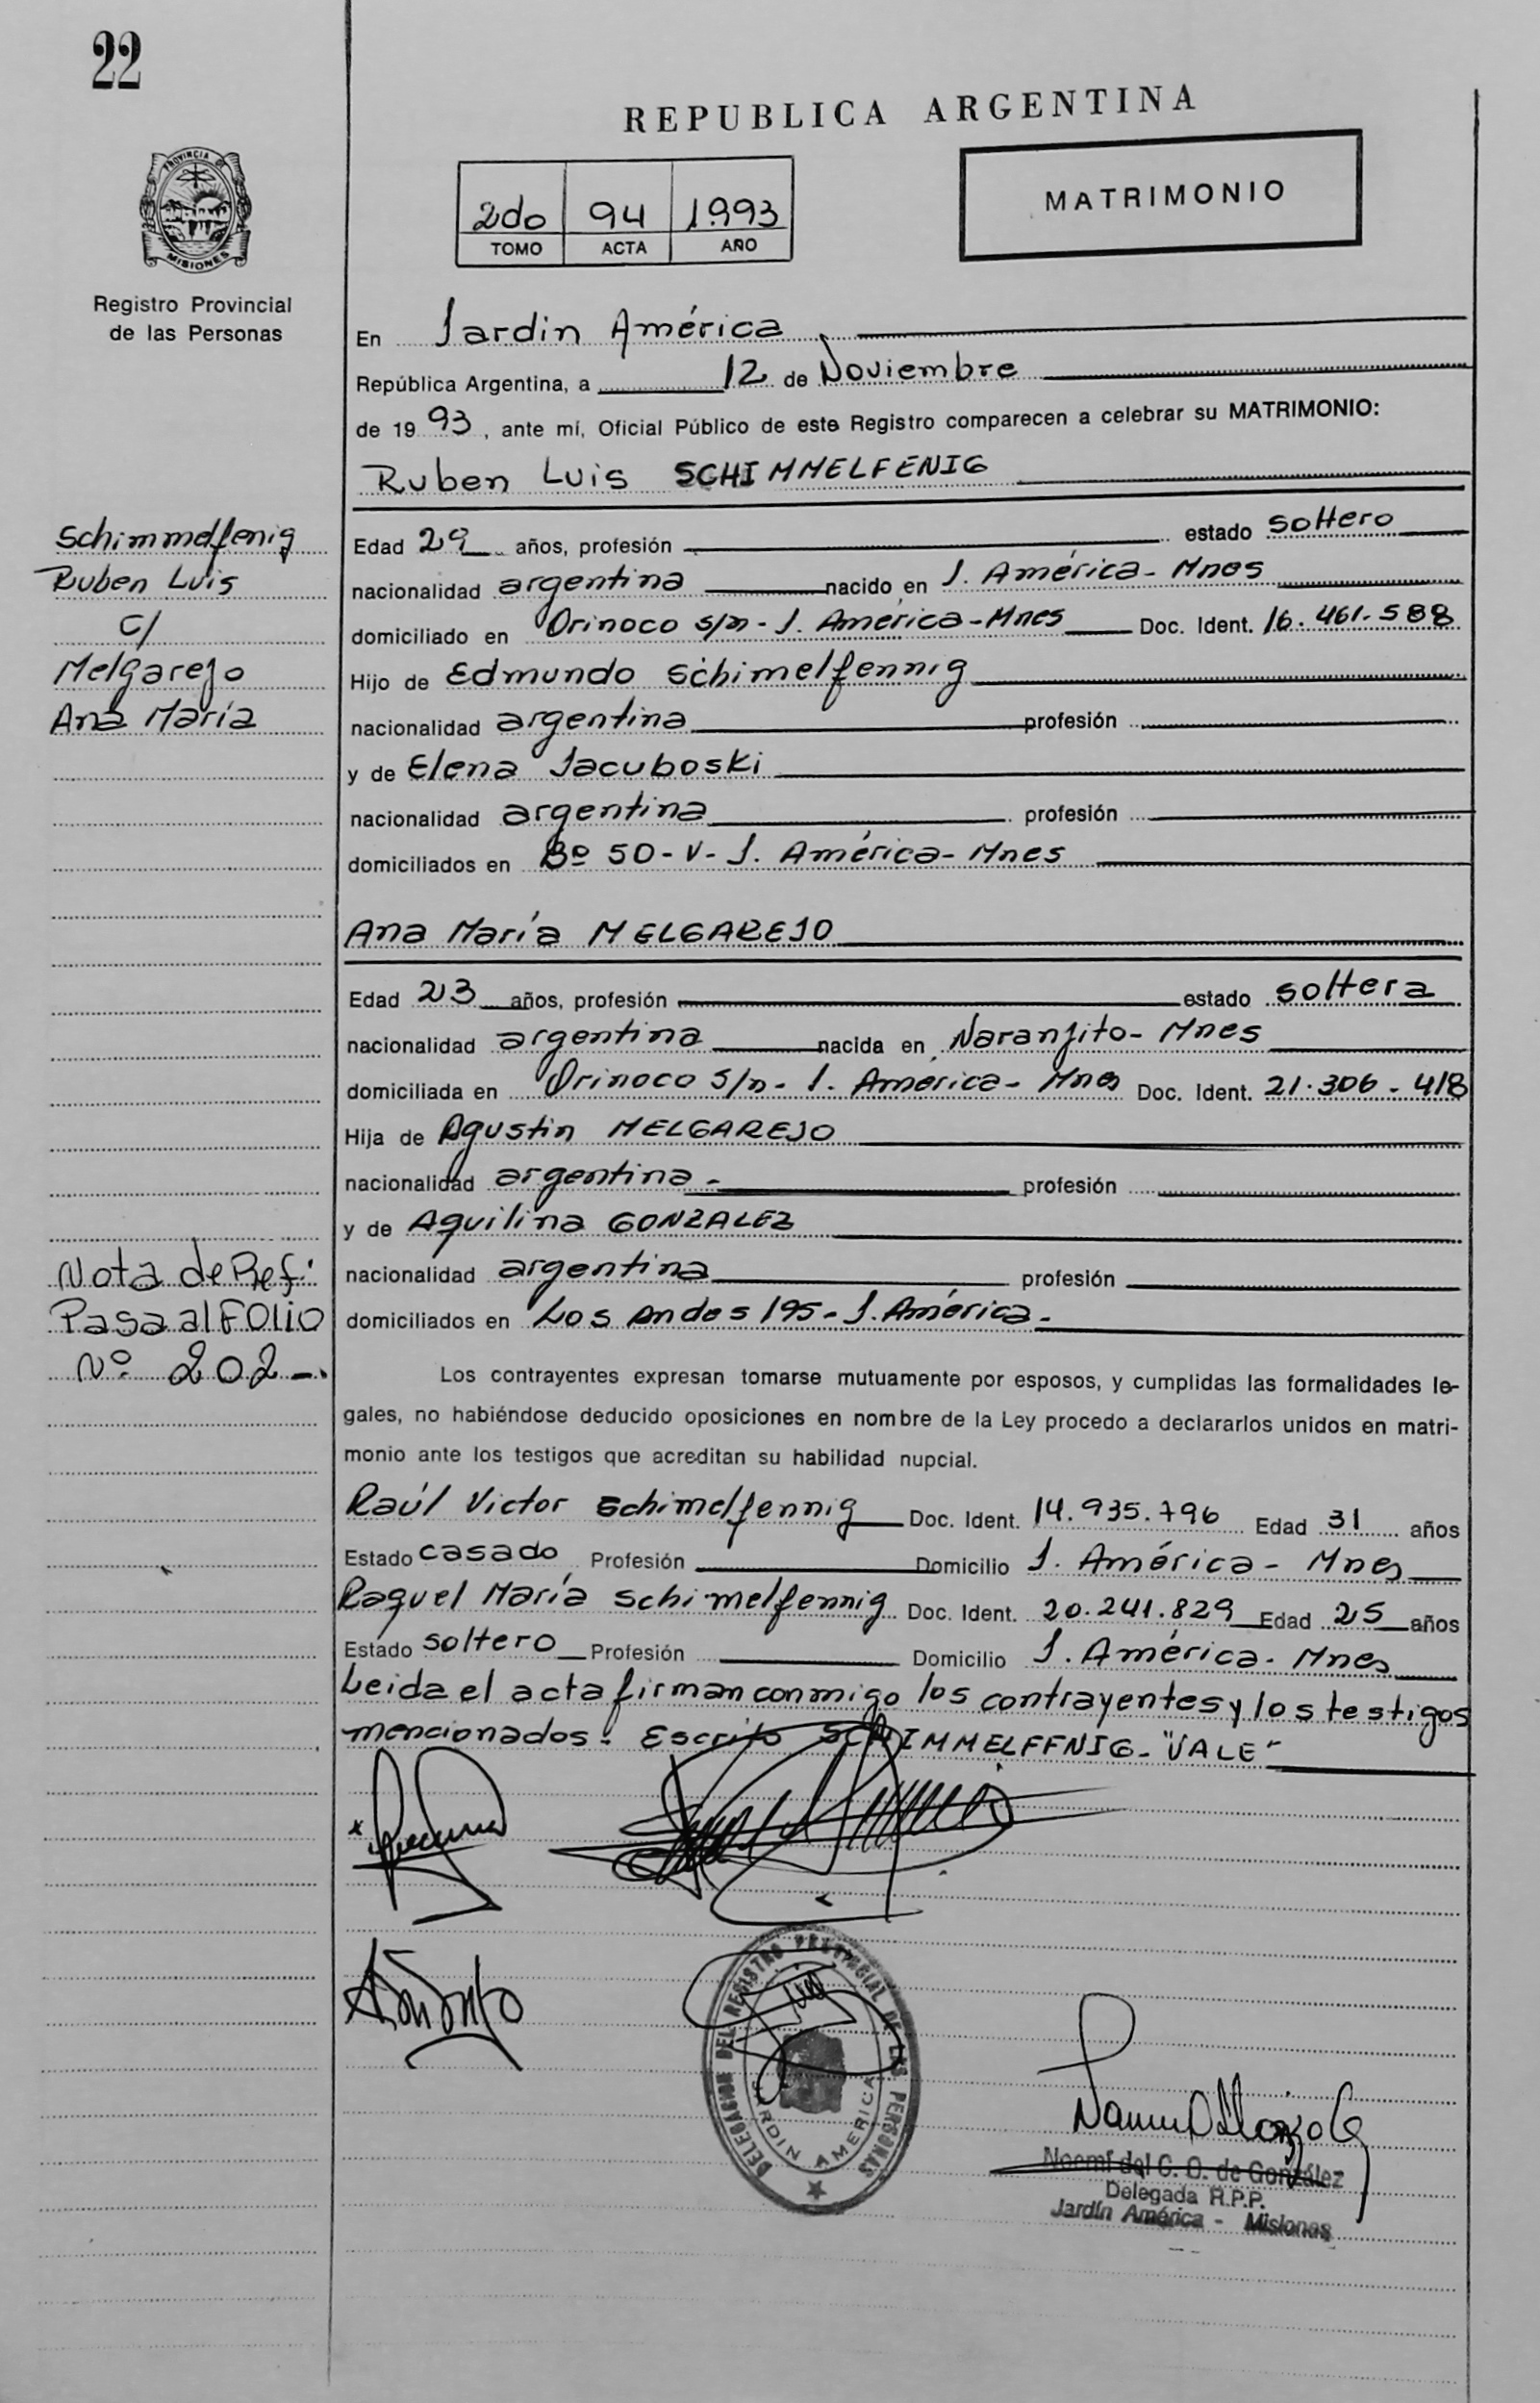 22
REPUBLICA ARGENTINA
2do 94 1993
TOMO ACTA AÑO
MATRIMONIO
PROVINCIA DE
MISIONES
Registro Provincial
de las Personas
En Jardin América
República Argentina, a 12 de Noviembre
de 1993, ante mí, Oficial Público de este Registro comparecen a celebrar su MATRIMONIO:
Ruben Luis SCHIMMELFENIG
Schimmelfenig
Ruben Luis
C/
Melgarejo
Ana María
Edad 29 años, profesión estado soltero
nacionalidad argentina nacido en J. América - Mnes
domiciliado en Orinoco s/n - J. América - Mnes Doc. Ident. 16.461.588
Hijo de Edmundo Schimelfennig
nacionalidad argentina profesión
y de Elena Jacuboski
nacionalidad argentina profesión
domiciliados en Bº 50 - V - J. América - Mnes
Ana María MELGAREJO
Edad 23 años, profesión estado soltera
nacionalidad argentina nacida en Naranjito - Mnes
domiciliada en Orinoco s/n - J. América - Mnes Doc. Ident. 21.306-418
Hija de Agustin MELGAREJO
nacionalidad argentina - profesión
y de Aquilina GONZALEZ
nacionalidad argentina profesión
domiciliados en Los Andes 195 - J. América -
Nota de Ref:
Pasa al FOLIO
Nº 202 -
Los contrayentes expresan tomarse mutuamente por esposos, y cumplidas las formalidades le-
gales, no habiéndose deducido oposiciones en nombre de la Ley procedo a declararlos unidos en matri-
monio ante los testigos que acreditan su habilidad nupcial.
Raúl Victor Schimelfennig Doc. Ident. 14.935.796 Edad 31 años
Estado casado Profesión Domicilio J. América - Mnes
Raquel María Schimelfennig Doc. Ident. 20.241.829 Edad 25 años
Estado soltero Profesión Domicilio J. América - Mnes
Leida el acta firman conmigo los contrayentes y los testigos
mencionados. Escrito SCHIMMELFENIG - "VALE"
DELEGACION DEL REGISTRO PROVINCIAL DE LAS PERSONAS
JARDIN AMERICA
Noemí del C. O. de González
Delegada R.P.P.
Jardín América - Misiones